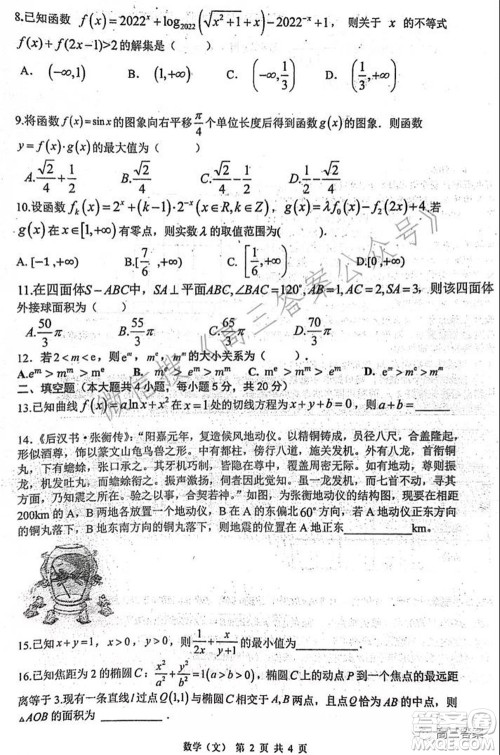 8.已知函数 f(x)=2022^x+log_2022(√(x²+1)+x)-2022^(-x)+1, 则关于 x 的不等式
f(x)+f(2x-1)>2的解集是( )
A. (-∞,1) B. (1,+∞) C. (-∞,1/3) D. (1/3,+∞)
9.将函数f(x)=sinx的图象向右平移π/4个单位长度后得到函数g(x)的图象. 则函数
y=f(x)·g(x)的最大值为( )
A.√2/4+1/2 B.√2/4 C.√2/4-1/2 D.1/2-√2/4
10.设函数f_k(x)=2^x+(k-1)·2^(-x)(x∈R,k∈Z), g(x)=λf_0(x)-f_2(2x)+4,若
g(x)在x∈[1,+∞)有零点, 则实数λ的取值范围为( ).
A.[-1,+∞) B.[7/6,+∞) C.[1/6,+∞) D.[0,+∞)
11.在四面体S-ABC中, SA⊥平面ABC,∠BAC=120°,AB=1,AC=2,SA=3, 则该四面体
外接球面积为( )
A.50/3π B.55/3π C.65/3π D.70/3π
12. 若2<m<e, 则e^m, m^e, m^m的大小关系为( ).
A.e^m>m^m>m^e B.e^m>m^e>m^m C. m^e>e^m>m^m D. m^e>m^m>e^m
二、填空题（本大题共4小题，每小题5分，共20分）
13.已知曲线f(x)=alnx+x²在x=1处的切线方程为x+y+b=0, 则a+b=
14.《后汉书·张衡传》：“阳嘉元年，复造候风地动仪。以精铜铸成，员径八尺，合盖隆起，
形似酒尊，饰以篆文山龟鸟兽之形。中有都柱，傍行八道，施关发机。外有八龙，首衔铜丸，
下有蟾蜍，张口承之。其牙机巧制，皆隐在尊中，覆盖周密无际。如有地动，尊则振龙，
机发吐丸，而蟾蜍衔之。振声激扬，伺者因此觉知。虽一龙发机，而七首不动，寻其
方面，乃知震之所在。验之以事，合契若神。”如图，为张衡地动仪的结构图，现要在相距
200km的A，B两地各放置一个地动仪，B在A的东偏北60°方向，若A地动仪正东方向
的铜丸落下，B地东南方向的铜丸落下，则地震的位置在A地正东 km。
15.已知x+y=1, x>0, y>0, 则1/(2x)+x/(y+1)的最小值为
16.已知焦距为2的椭圆C: x²/a²+y²/b²=1(a>b>0), 椭圆C上的动点P到一个焦点的最远距
离等于3.现有一条直线l过点Q(1,1)与椭圆C交于A,B两点, 且点Q恰为AB的中点, 则
△AOB的面积为
数学（文）第 2 页 共 4 页
高三答案
微信搜《高三答案公众号》